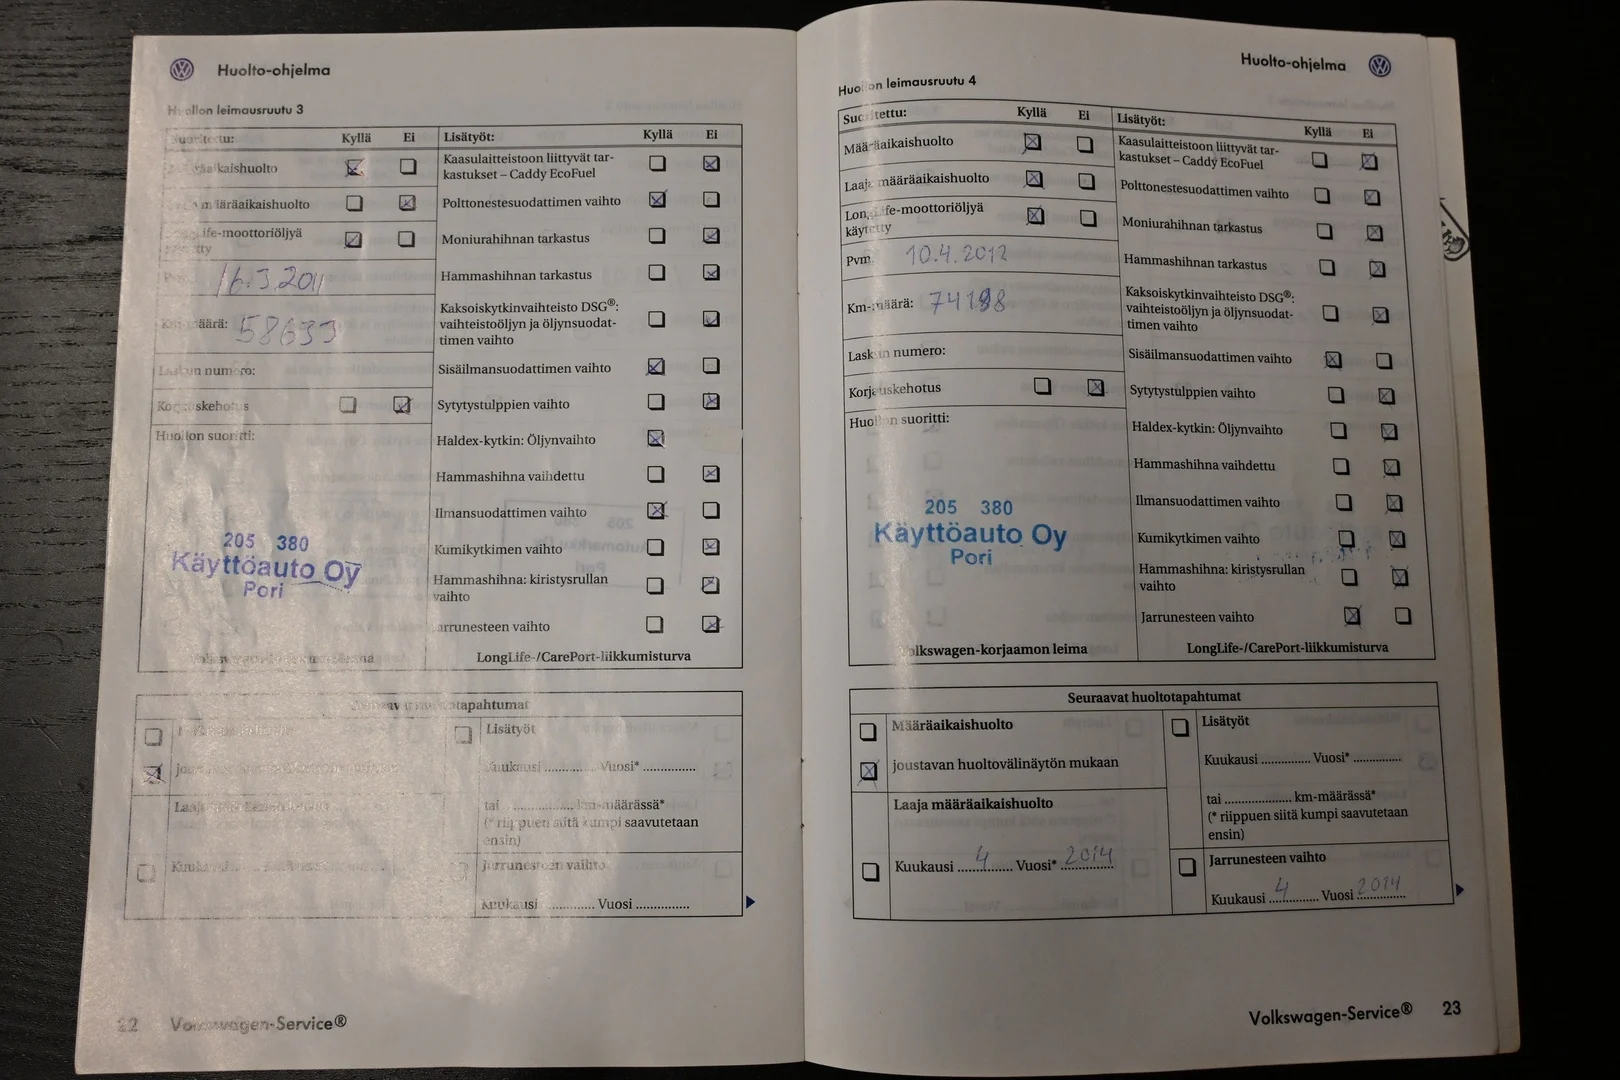 Huolto-ohjelma
Huollon leimausruutu 3
Suoritettu: Kyllä Ei
Määräaikaishuolto
määräaikaishuolto
LongLife-moottoriöljyä
käytetty
Pvm. 16.3.2011
Km-määrä: 58633
Laskun numero:
Korjauskehotus
Huollon suoritti:
205 380
Käyttöauto Oy
Pori
Lisätyöt: Kyllä Ei
Kaasulaitteistoon liittyvät tar-
kastukset – Caddy EcoFuel
Polttonestesuodattimen vaihto
Moniurahihnan tarkastus
Hammashihnan tarkastus
Kaksoiskytkinvaihteisto DSG®:
vaihteistoöljyn ja öljynsuodat-
timen vaihto
Sisäilmansuodattimen vaihto
Sytytystulppien vaihto
Haldex-kytkin: Öljynvaihto
Hammashihna vaihdettu
Ilmansuodattimen vaihto
Kumikytkimen vaihto
Hammashihna: kiristysrullan
vaihto
Jarrunesteen vaihto
LongLife-/CarePort-liikkumisturva
Lisätyöt
Kuukausi ............ Vuosi* ..............
tai ................ km-määrässä*
(* riippuen siitä kumpi saavutetaan
ensin)
Laaja
Kuukausi
Jarrunesteen vaihto
Kuukausi ............ Vuosi ..............
22 Volkswagen-Service®
Huolto-ohjelma
Huollon leimausruutu 4
Suoritettu: Kyllä Ei
Määräaikaishuolto
Laaja määräaikaishuolto
LongLife-moottoriöljyä
käytetty
Pvm. 10.4.2012
Km-määrä: 74198
Laskun numero:
Korjauskehotus
Huollon suoritti:
205 380
Käyttöauto Oy
Pori
Volkswagen-korjaamon leima
Lisätyöt: Kyllä Ei
Kaasulaitteistoon liittyvät tar-
kastukset – Caddy EcoFuel
Polttonestesuodattimen vaihto
Moniurahihnan tarkastus
Hammashihnan tarkastus
Kaksoiskytkinvaihteisto DSG®:
vaihteistoöljyn ja öljynsuodat-
timen vaihto
Sisäilmansuodattimen vaihto
Sytytystulppien vaihto
Haldex-kytkin: Öljynvaihto
Hammashihna vaihdettu
Ilmansuodattimen vaihto
Kumikytkimen vaihto
Hammashihna: kiristysrullan
vaihto
Jarrunesteen vaihto
LongLife-/CarePort-liikkumisturva
Seuraavat huoltotapahtumat
Määräaikaishuolto
joustavan huoltovälinäytön mukaan
Laaja määräaikaishuolto
Kuukausi ...4... Vuosi* 2014
Lisätyöt
Kuukausi .............. Vuosi* ..............
tai ................... km-määrässä*
(* riippuen siitä kumpi saavutetaan
ensin)
Jarrunesteen vaihto
Kuukausi ...4... Vuosi 2014
Volkswagen-Service® 23